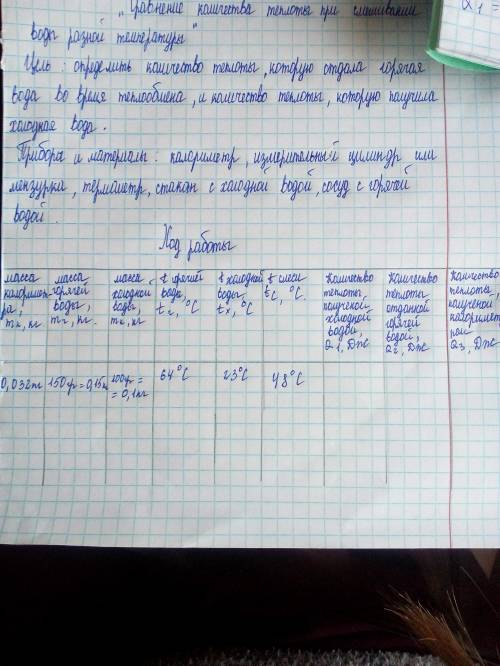 „Сравнение количества теплоты при смешивании
воды разной температуры"
Цель: определить количество теплоты, которую отдала горячая
вода во время теплообмена, и количество теплоты, которую получила
холодная вода.
Приборы и материалы: калориметр, измерительный цилиндр или
мензурка, термометр, стакан с холодной водой, сосуд с горячей
водой.
Ход работы
масса
калоримет-
ра,
mк, кг
масса
горячей
воды,
mг, кг.
масса
холодной
воды,
mх, кг
t горячей
воды,
tг, °C
t холодной
воды,
tх, °C
t смеси
tс, °C.
Количество
теплоты,
полученной
холодной
водой,
Q1, Дж
Количество
теплоты
отданной
горячей
водой,
Q2, Дж
Количество
теплоты,
полученой
калоримет
ром
Q3, Дж
0,032кг
150гр = 0,15кг
100гр =
= 0,1кг
64°C
23°C
48°C